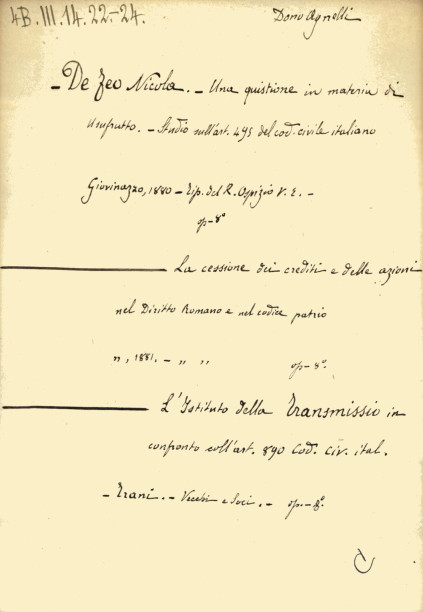 4B.III.14.22-24.
Dono Agnelli
- De Zeo Nicola. - Una quistione in materia di
Usufrutto. - Studio sull'art. 495 del cod. civile italiano
Giovinazzo, 1880 - Tip. del R. Ospizio V. E. -
op-8°
La cessione dei crediti e delle azioni
nel Diritto Romano e nel codice patrio
n, 1881. - " "
op-8°.
L'Istituto della Transmissio in
confronto coll'art. 890 Cod. civ. ital.
- Trani. - Vecchi e Soci. - op-8°.